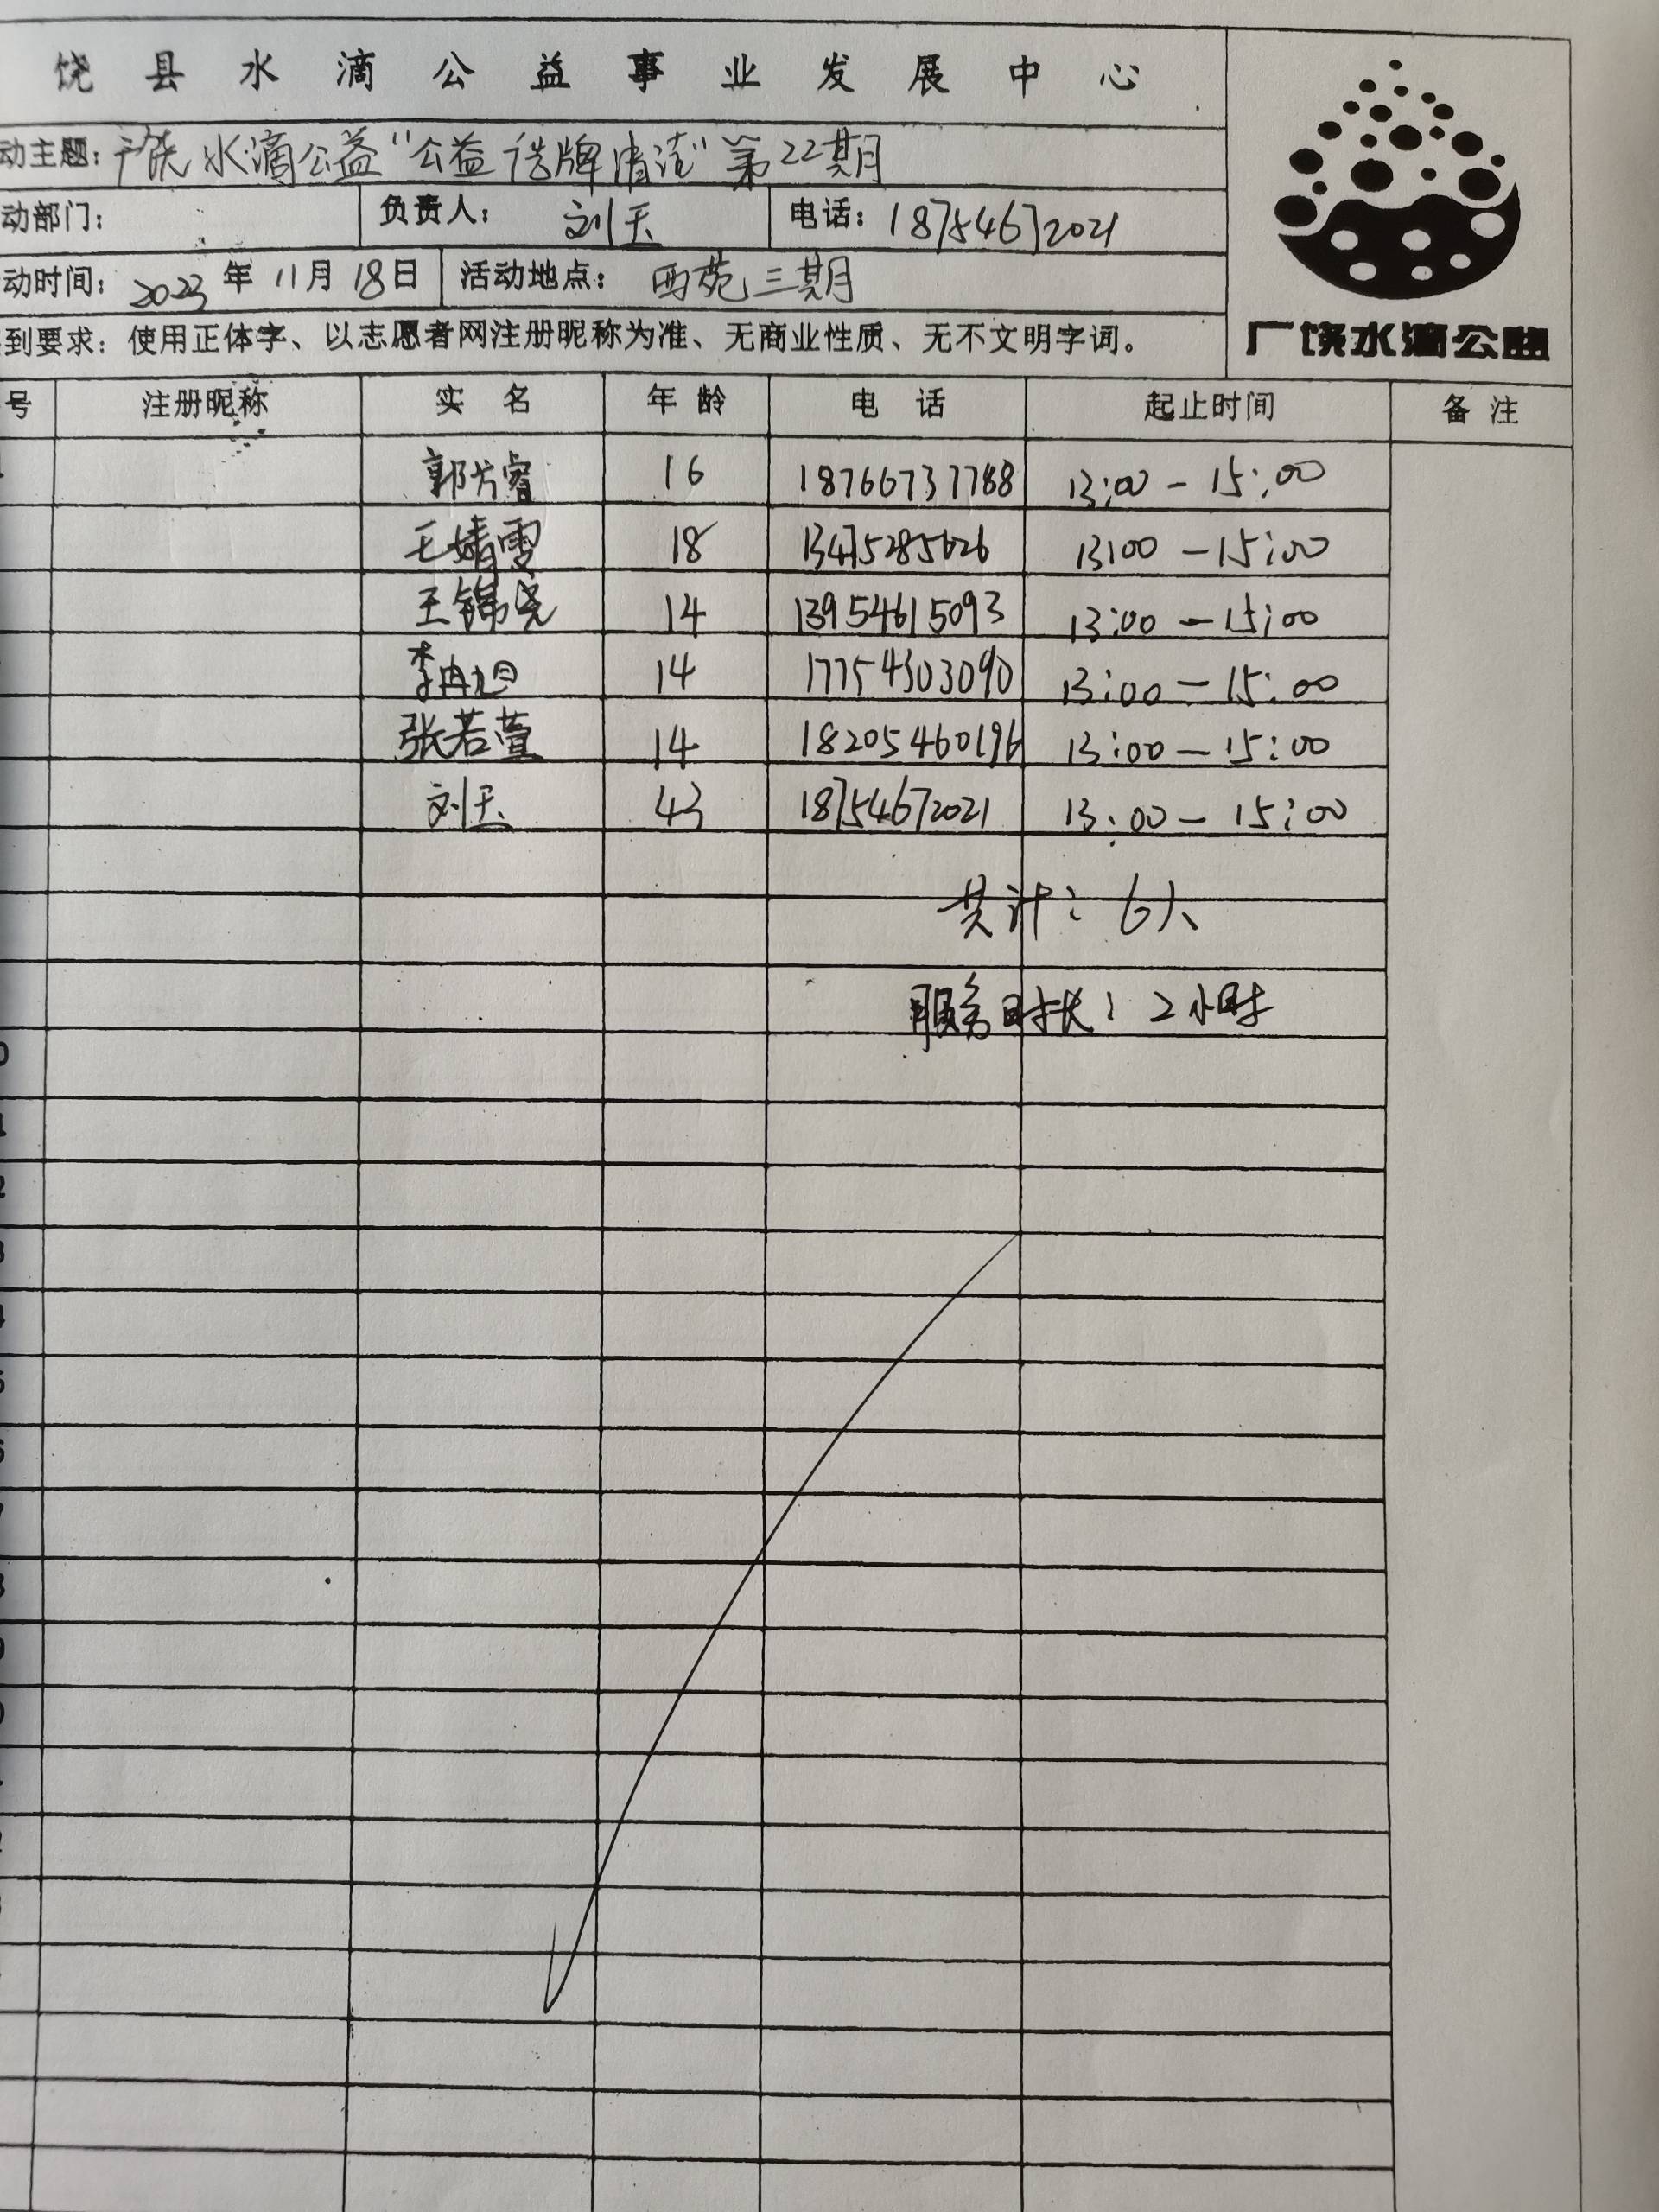 饶县水滴公益事业发展中心
动主题：广饶水滴公益“公益话牌清洁”第22期
动部门： 负责人：刘玉 电话：18754672021
动时间：2023年11月18日 活动地点：西苑三期
到要求：使用正体字、以志愿者网注册昵称为准、无商业性质、无不文明字词。
广饶水滴公益
号 注册昵称 实名 年龄 电话 起止时间 备注
郭芳睿 16 18766737788 13:00-15:00
王婧雯 18 13475285626 13:00-15:00
王锦尧 14 13954615093 13:00-15:00
李冉旭 14 17754303090 13:00-15:00
张若萱 14 18205460196 13:00-15:00
刘玉 43 18754672021 13:00-15:00
共计：6人
服务时长：2小时